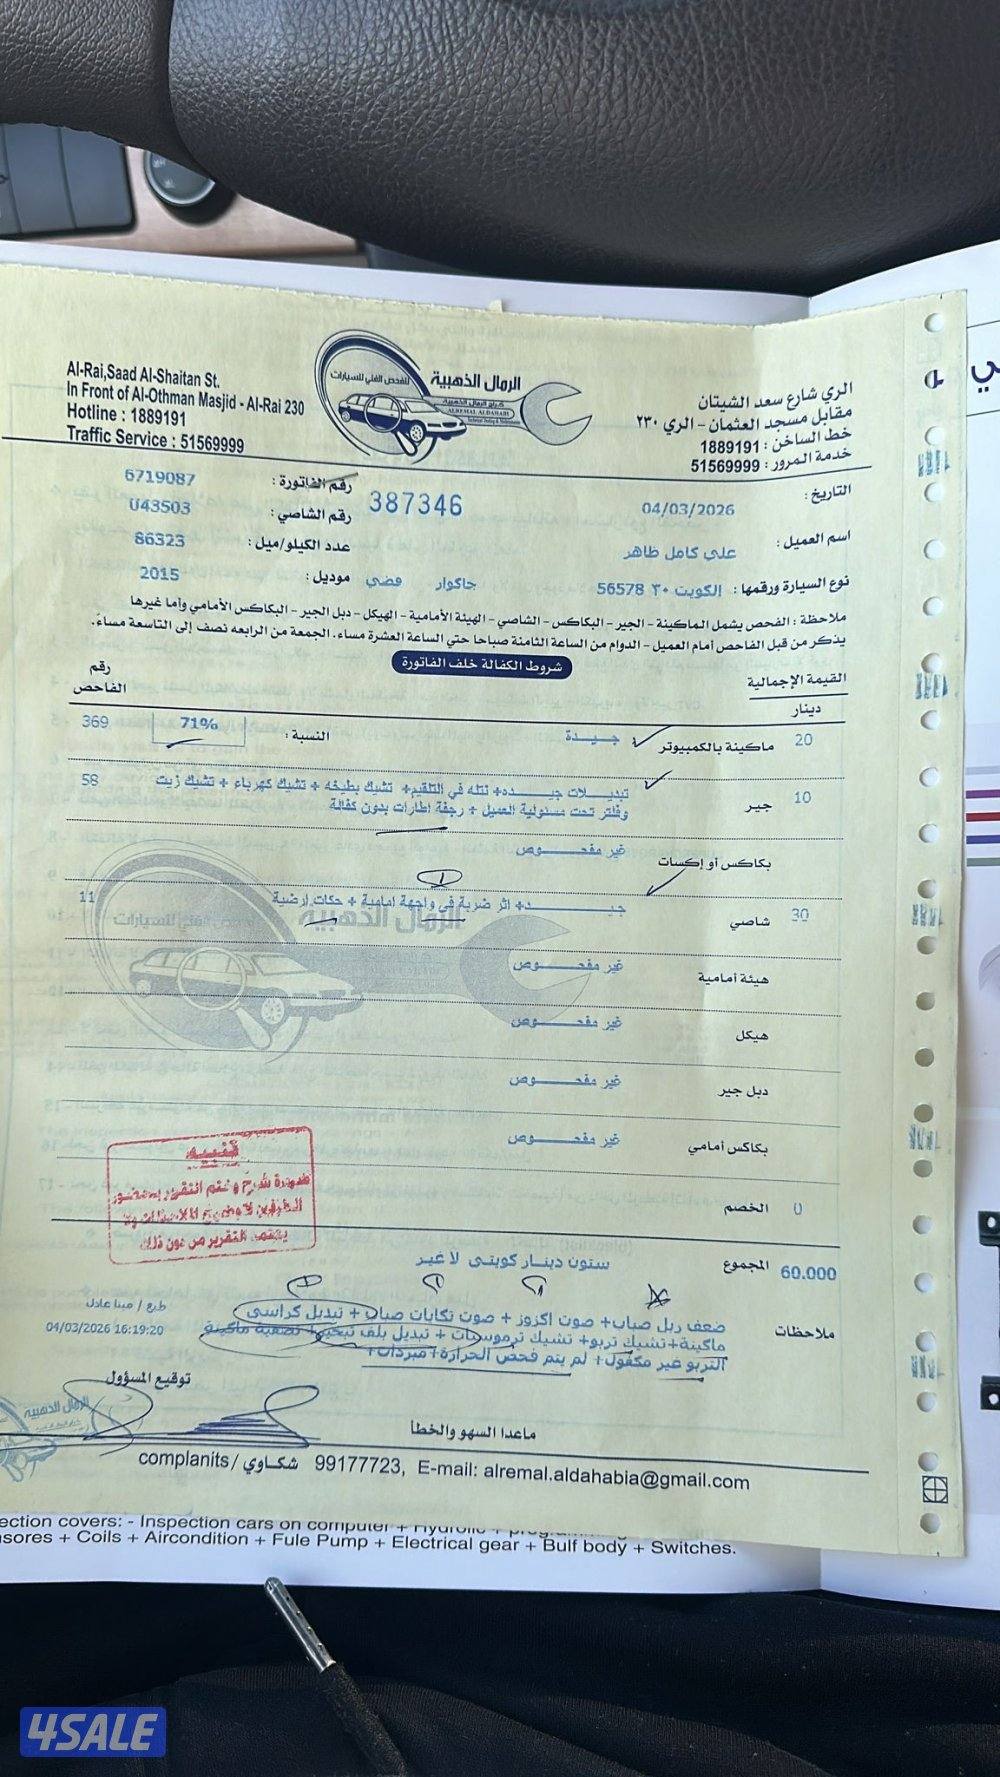 Al-Rai,Saad Al-Shaitan St.
In Front of Al-Othman Masjid - Al-Rai 230
Hotline : 1889191
Traffic Service : 51569999
الرمال الذهبية
للفحص الفني للسيارات
كراج الرمال الذهبية
ALREMAL ALDAHABI
الري شارع سعد الشيتان
مقابل مسجد العثمان - الري ٢٣٠
خط الساخن : 1889191
خدمة المرور : 51569999
التاريخ : 04/03/2026
387346
رقم الفاتورة : 6719087
رقم الشاصي : U43503
اسم العميل : علي كامل ظاهر
عدد الكيلو/ميل : 86323
نوع السيارة ورقمها : الكويت ٣٠ 56578 جاكوار فضي
موديل : 2015
ملاحظة : الفحص يشمل الماكينة - الجير - البكاكس - الشاصي - الهيئة الأمامية - الهيكل - دبل الجير - البكاكس الأمامي وأما غيرها
يذكر من قبل الفاحص أمام العميل - الدوام من الساعة الثامنة صباحا حتي الساعة العشرة مساء. الجمعة من الرابعه نصف إلى التاسعة مساء.
شروط الكفالة خلف الفاتورة
القيمة الإجمالية
دينار
رقم الفاحص
20 ماكينة بالكمبيوتر جيدة النسبة : 71% 369
10 جير تبديلات جيده+ نتله في التلقيم+ تشيك بطيخه + تشيك كهرباء + تشيك زيت 58
وفلتر تحت مسئولية العميل + رجفة اطارات بدون كفالة
بكاكس أو إكسات غير مفحوص
30 شاصي جيد+ اثر ضربة في واجهة امامية + حكات ارضية 11
هيئة أمامية غير مفحوص
هيكل غير مفحوص
دبل جير غير مفحوص
بكاكس أمامي غير مفحوص
0 الخصم
60.000 المجموع ستون دينار كويتى لا غير
تنبيه
ضرورة شرح و ختم التقرير بحضور
الطرفين
يعتمد التقرير من دون ذلك
ملاحظات
ضعف ربل صباب+ صوت اكزوز + صوت تكايات صباب + تبديل كراسى
ماكينة+تشيك تربو+ تشيك ترموستات + تبديل بلف تبخير+ تصفية ماكينة
التربو غير مكفول+ لم يتم فحص الحرارة+ مبردات+
طبع / مينا عادل
04/03/2026 16:19:20
توقيع المسؤول
الرمال الذهبية
ماعدا السهو والخطا
complanits / شكاوي 99177723, E-mail: alremal.aldahabia@gmail.com
ection covers: - Inspection cars on computer + Hydrolic +
nsores + Coils + Aircondition + Fule Pump + Electrical gear + Bulf body + Switches.
4SALE